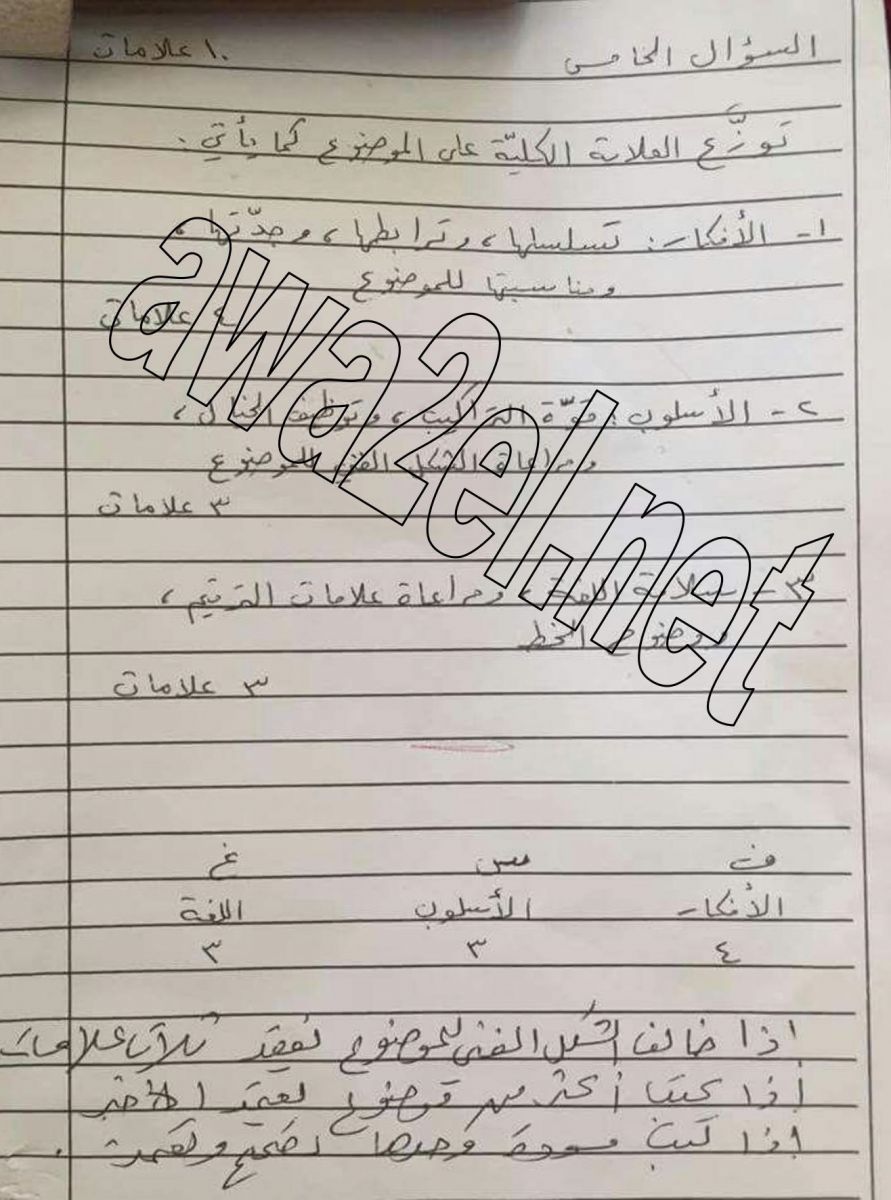 السؤال الخامس ١٠ علامات
توزَّع العلامة الكليّة على الموضوع كما يأتي:
١- الأفكار: تسلسلها، وترابطها، وجدّتها،
ومناسبتها للموضوع
٤ علامات
٢- الأسلوب: قوّة التراكيب، وتوظيف الخيال،
ومراعاة الشكل الفني للموضوع
٣ علامات
٣- سلامة اللغة، ومراعاة علامات الترقيم،
ووضوح الخط
٣ علامات
awa2el.net
ف س غ
الأفكار الأسلوب اللغة
٤ ٣ ٣
إذا خالف الشكل الفني للموضوع يفقد ثلاث علامات
إذا كتب أكثر من موضوع يعتمد الأخير
إذا كتب مسودة وحدها تصحح وتعتمد.